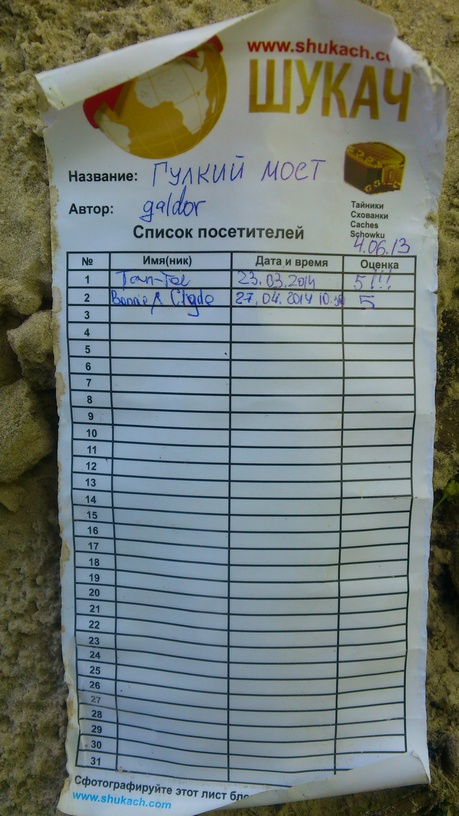 www.shukach.c
ШУКАЧ
Название: Гулкий мост
Автор: galdor
Тайники
Схованки
Caches
Schowku
4.06.13
Список посетителей
№ Имя(ник) Дата и время Оценка
1 23.03.2014 5!!!
2 Bonnie & Clyde 27.04.2014 5
3
4
5
6
7
8
9
10
11
12
13
14
15
16
17
18
19
20
21
22
23
24
25
26
27
28
29
30
31
Сфотографируйте этот лист
www.shukach.com